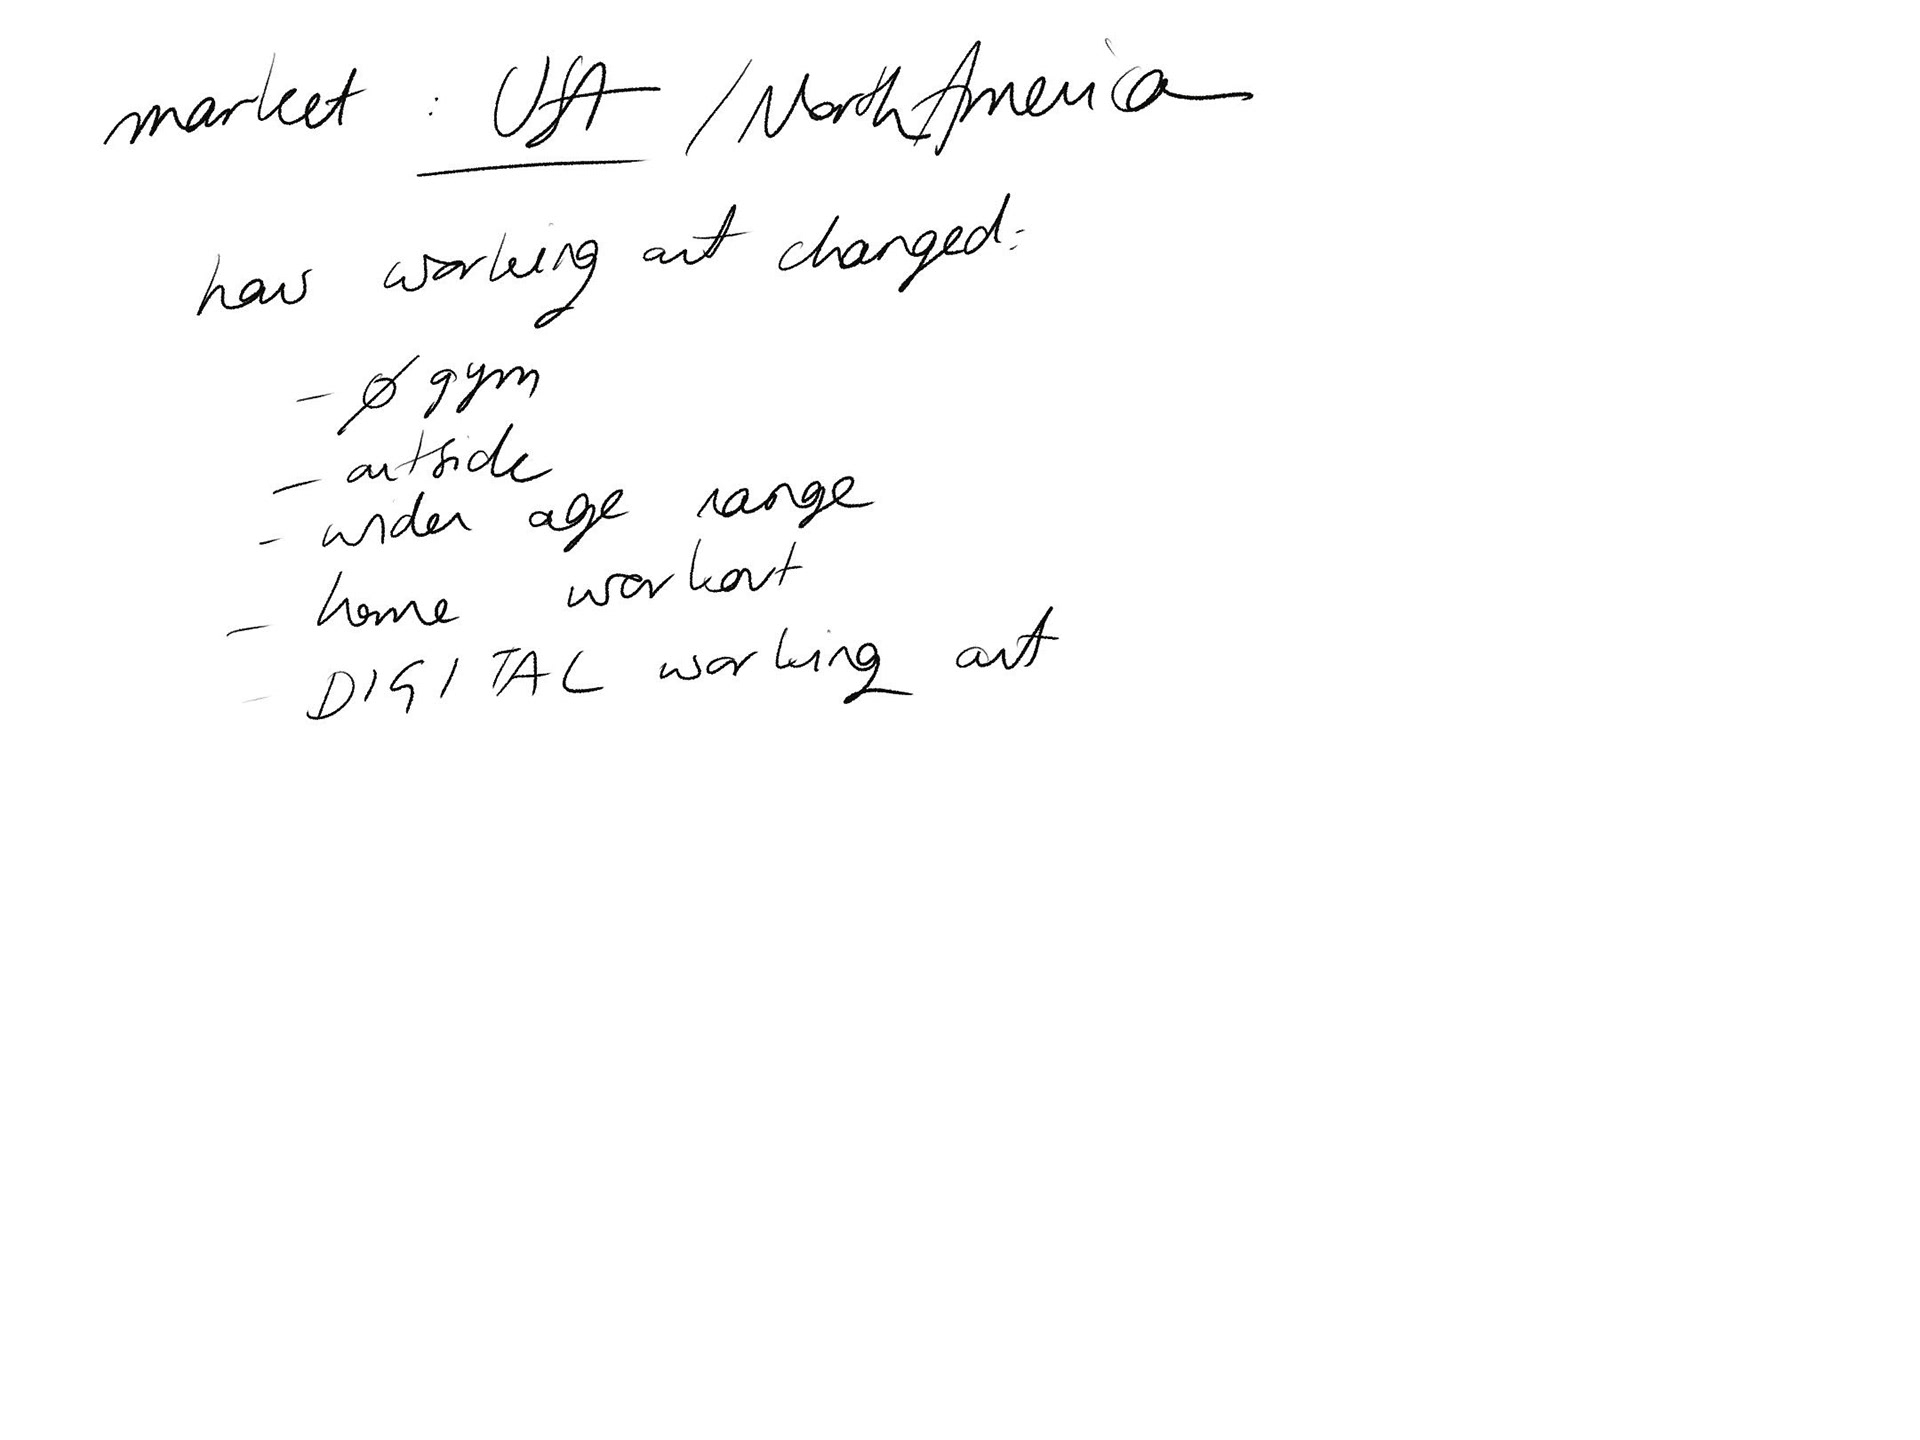 market : USA / North America
how working out changed:
- Ø gym
- outside
- wider age range
- home workout
- DIGITAL working out